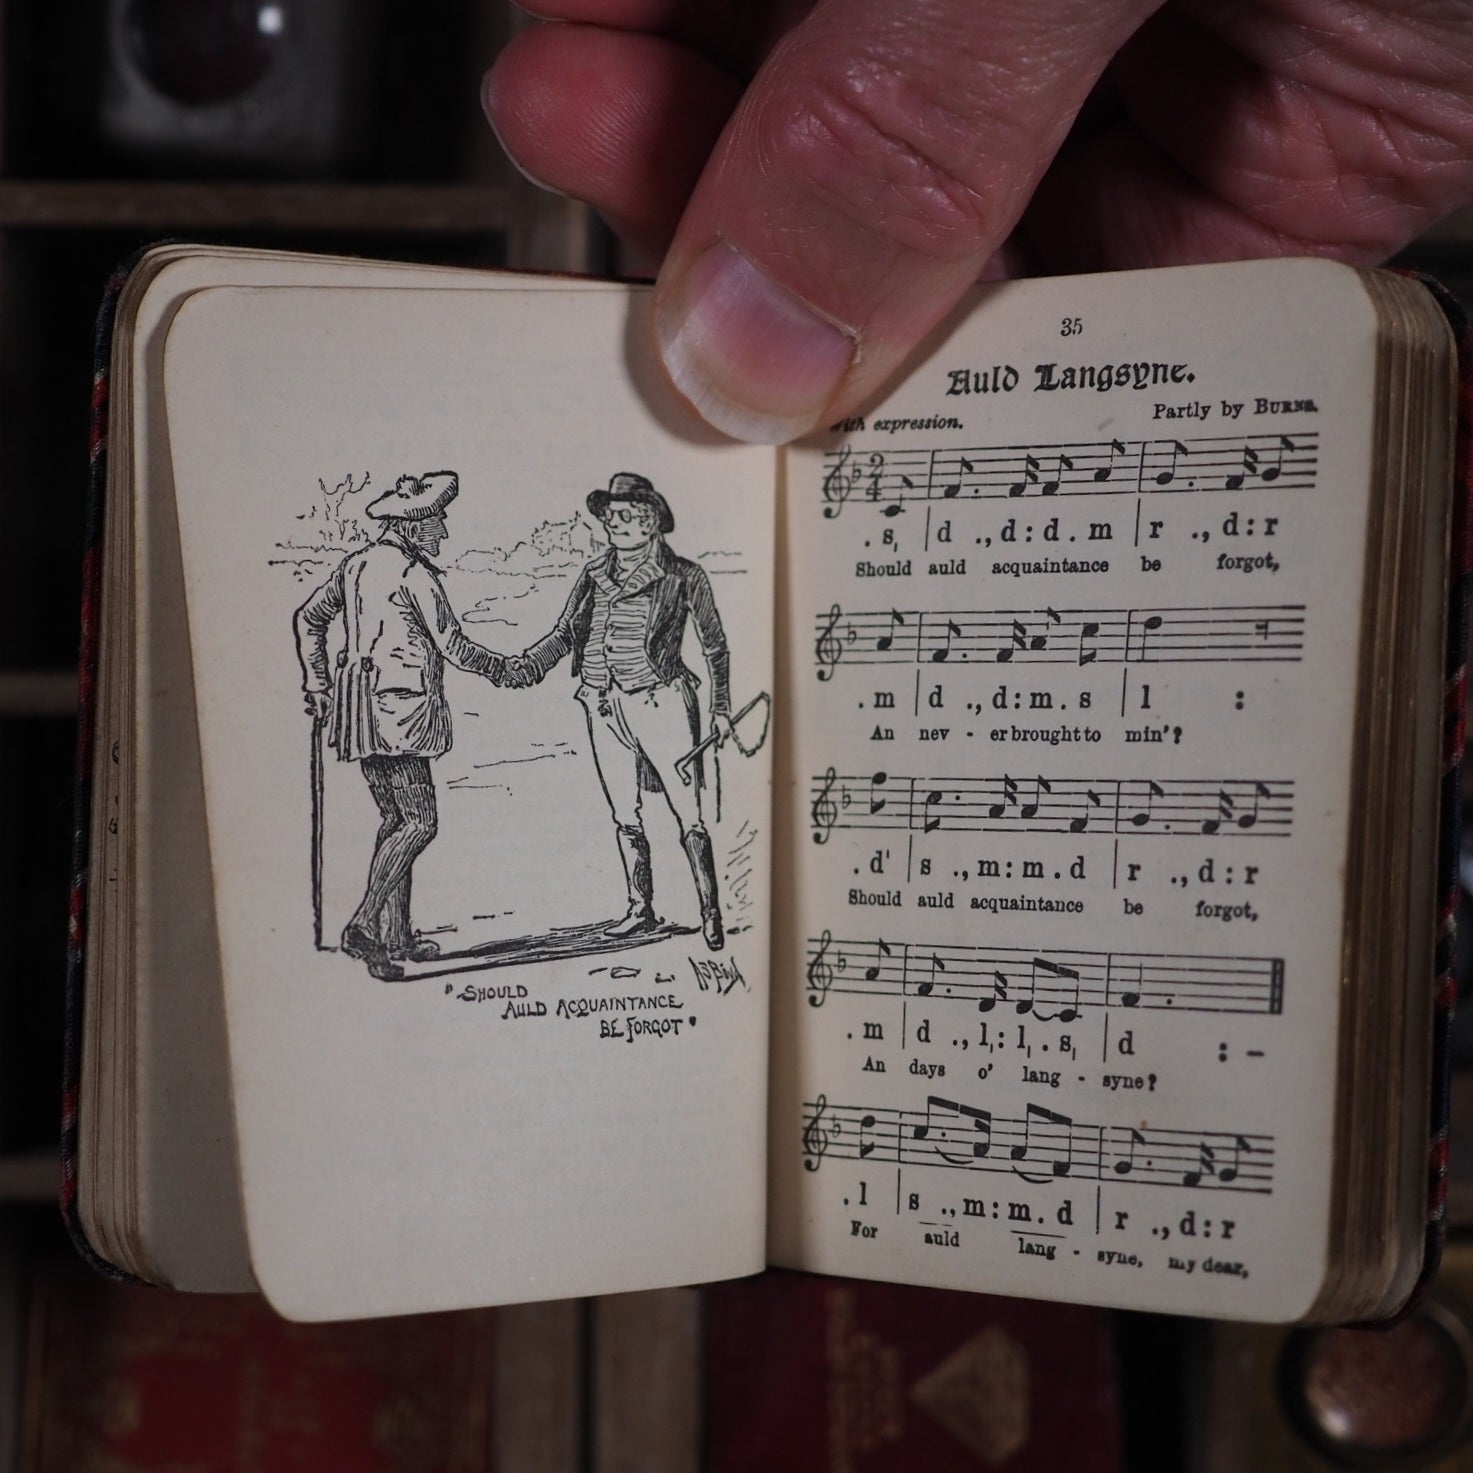 "SHOULD
AULD ACQUAINTANCE
BE FORGOT"
35
Auld Langsyne.
With expression.
Partly by BURNS.
2
4
. s, | d ., d : d . m | r ., d : r
Should auld acquaintance be forgot,
. m | d ., d : m . s | l :
An nev - er brought to min'?
. d' | s ., m : m . d | r ., d : r
Should auld acquaintance be forgot,
. m | d ., l, : l, . s, | d : -
An days o' lang - syne?
. l | s ., m : m . d | r ., d : r
For auld lang - syne, my dear,